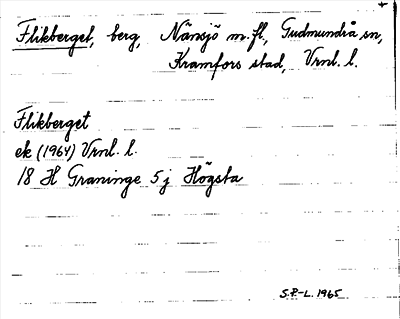 Flikberget, berg, Nänsjö m. fl., Gudmundrå sn,
Kramfors stad, Vrnl. l.
Flikberget
ek (1964) Vrnl. l.
18 H Graninge 5 j Högsta
S.P.-L. 1965